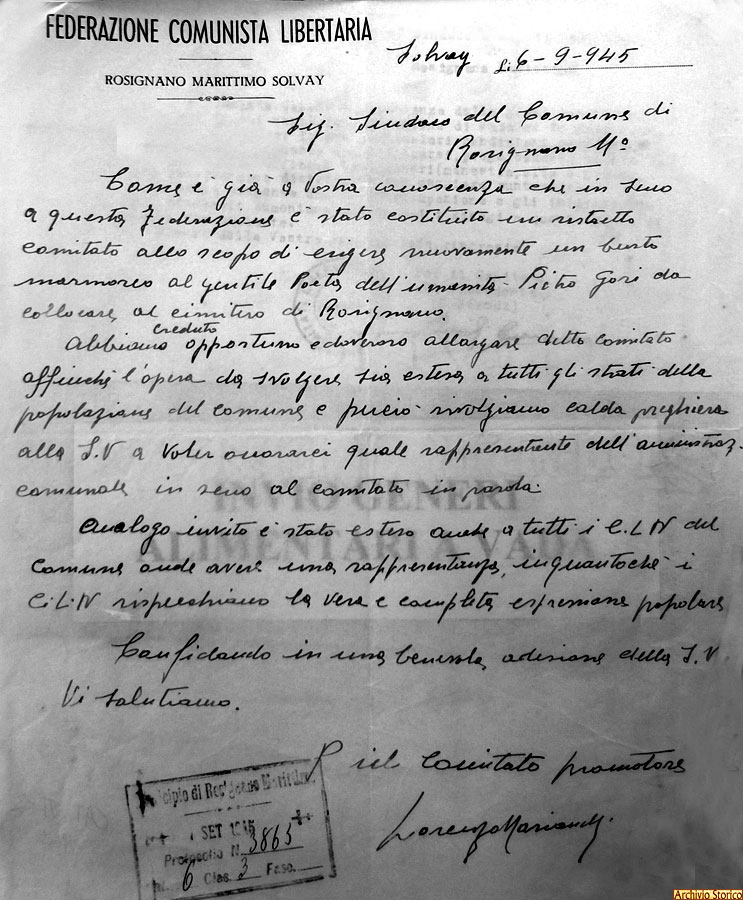 FEDERAZIONE COMUNISTA LIBERTARIA
ROSIGNANO MARITTIMO SOLVAY
Solvay li 6-9-945
Sig. Sindaco del Comune di
Rosignano Mº
Come è già a Vostra conoscenza che in seno
a questa Federazione è stato costituito un ristretto
comitato allo scopo di erigere nuovamente un busto
marmoreo al gentile Poeta dell'umanità Pietro Gori da
collocare al cimitero di Rosignano.
Abbiamo creduto opportuno e doveroso allargare detto comitato
affinché l'opera da svolgere sia estesa a tutti gli strati della
popolazione del comune e perciò rivolgiamo calda preghiera
alla S.V a voler onorarci quale rappresentante dell'amministraz.
comunale in seno al comitato in parola.
Analogo invito è stato esteso anche a tutti i C.L.N del
Comune onde avere una rappresentanza, inquantoché i
C.L.N rispecchiano la vera e completa espressione popolare
Confidando in una benevola adesione della S.V
Vi salutiamo.
P il Comitato promotore
Lorenzo
Municipio di Rosignano Marittimo
SET 1945
Protocollo N. 3865
6 Clas. 3 Fasc.
INVIO GENERI
ALIMENTARI A VADA
Archivio Storico